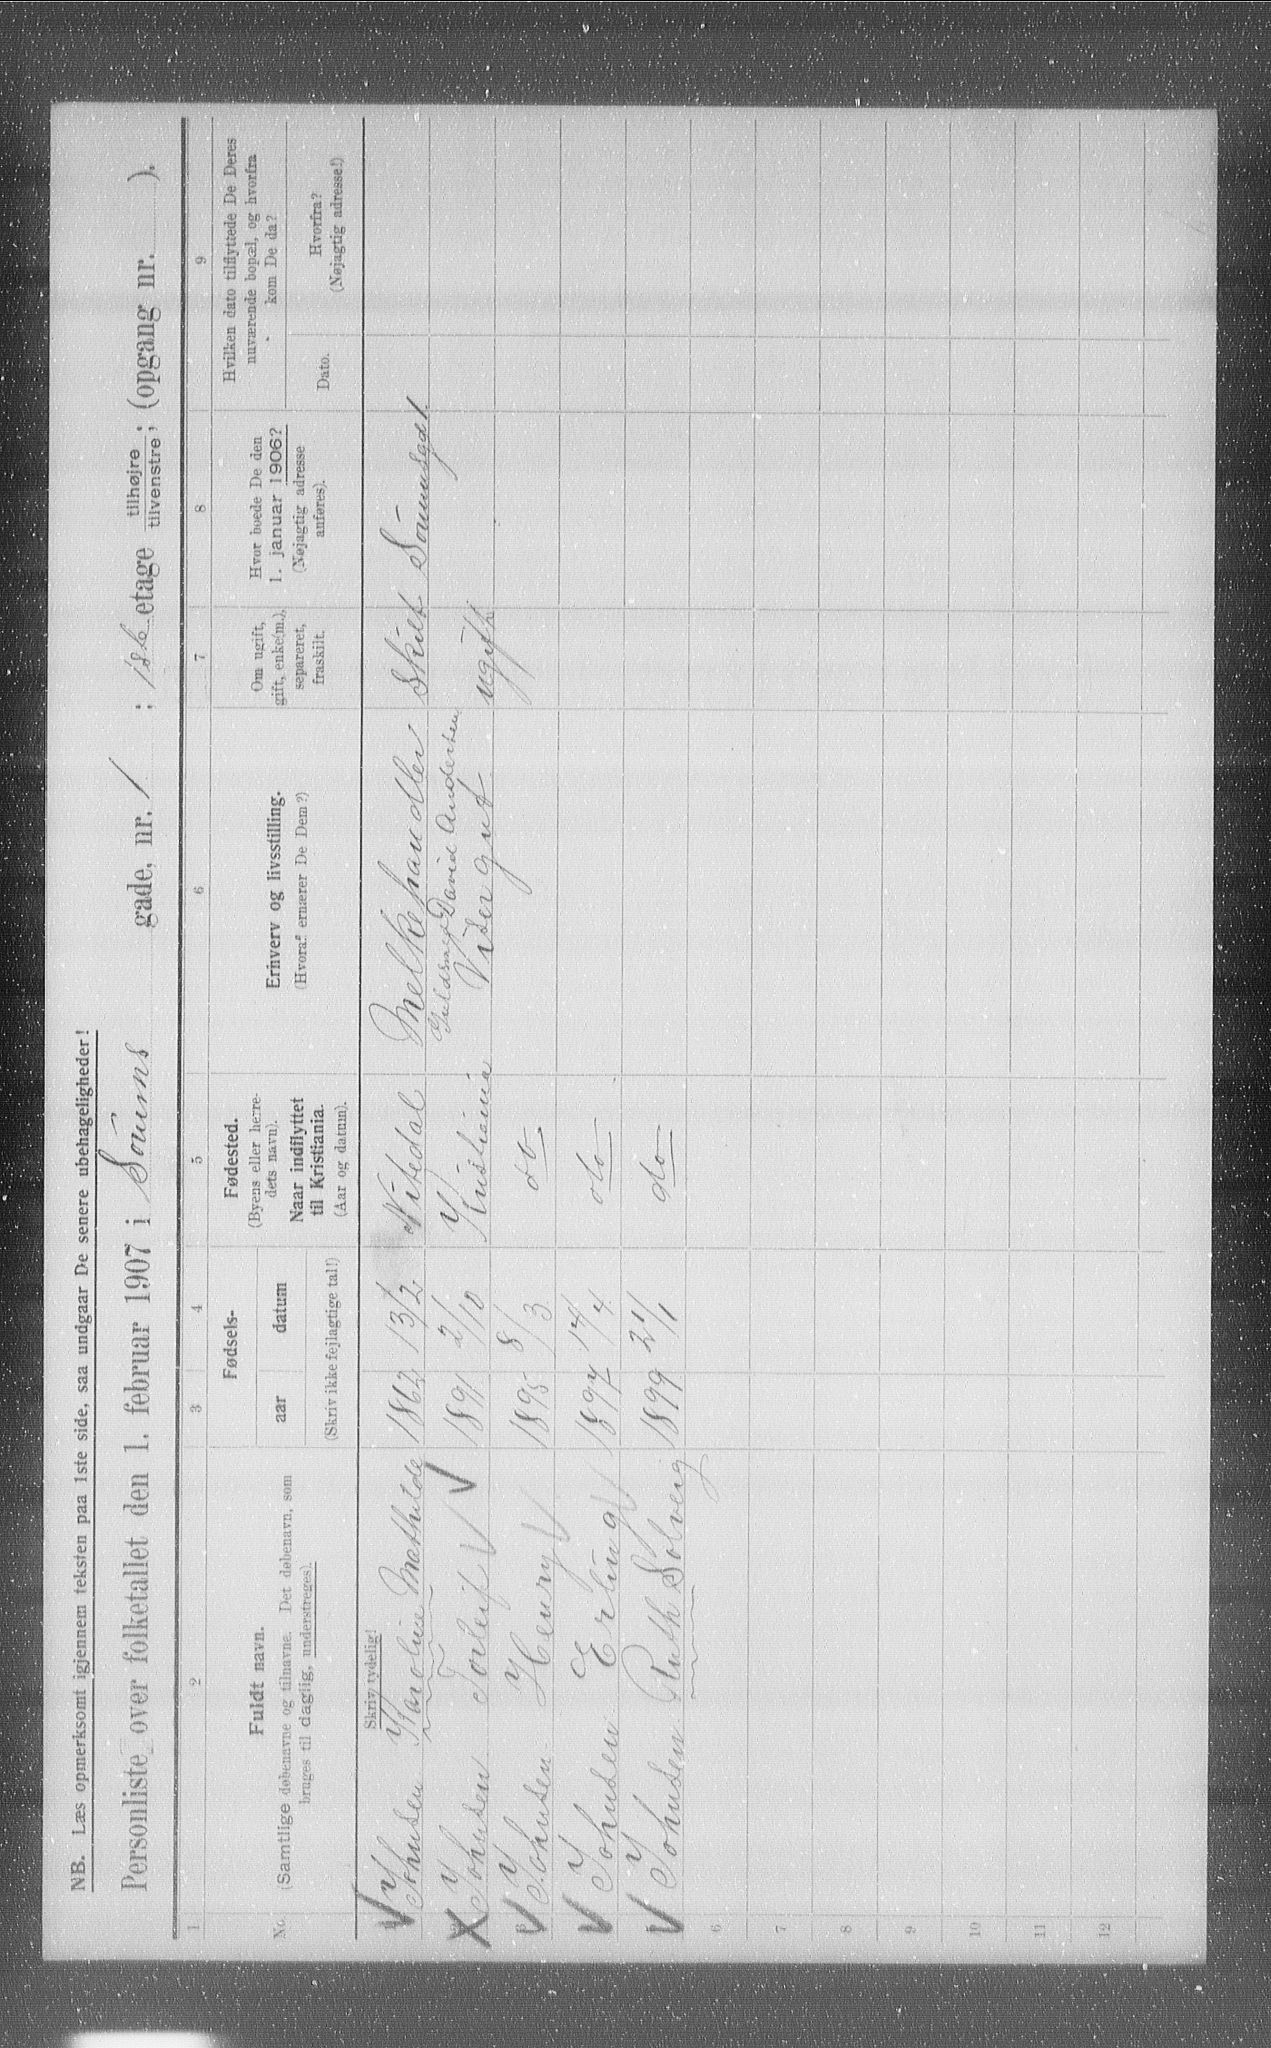 NB. Læs opmerksomt igjennem teksten paa 1ste side, saa undgaar De senere ubehageligheder!
Personliste over folketallet den 1. februar 1907 i Sørums gade, nr. 1 ; 1ste etage tilhøjre tilvenstre; (opgang nr. ).
1 2 3 4 5 6 7 8 9
No.
Fuldt navn.
(Samtlige døbenavne og tilnavne. Det døbenavn, som
bruges til daglig, understreges).
Fødsels-
aar datum
(Skriv ikke fejlagtige tal!)
Fødested.
(Byens eller herre-
dets navn).
Naar indflyttet
til Kristiania.
(Aar og datum).
Erhverv og livsstilling.
(Hvoraf ernærer De Dem?)
Om ugift,
gift, enke(m.),
separeret,
fraskilt.
Hvor boede De den
1. januar 1906?
(Nøjagtig adresse
anføres).
Hvilken dato tilflyttede De Deres
nuværende bopæl, og hvorfra
kom De da?
Dato.
Hvorfra?
(Nøjagtig adresse!)
Skriv tydelig!
Johnsen Karoline Mathilde 1862 13/2 Nitedal Melkehandler Skilt Sørumsgd 1.
Johnsen Torleif 1891 2/10 Kristiania David Andersen Visergut ugift
3 Johnsen Henry 1895 8/3 do
Johnsen Erling 1897 14/4 do
Johnsen Ruth Solveig 1899 21/1 do
6
7
8
9
10
11
12